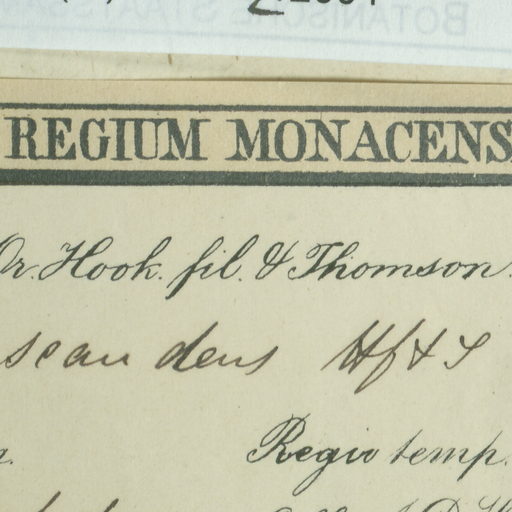 BOTANISCHE STAATSSA
REGIUM MONACENS
Dr. Hook. fil. & Thomson.
scandens Hf & T
Regio temp.